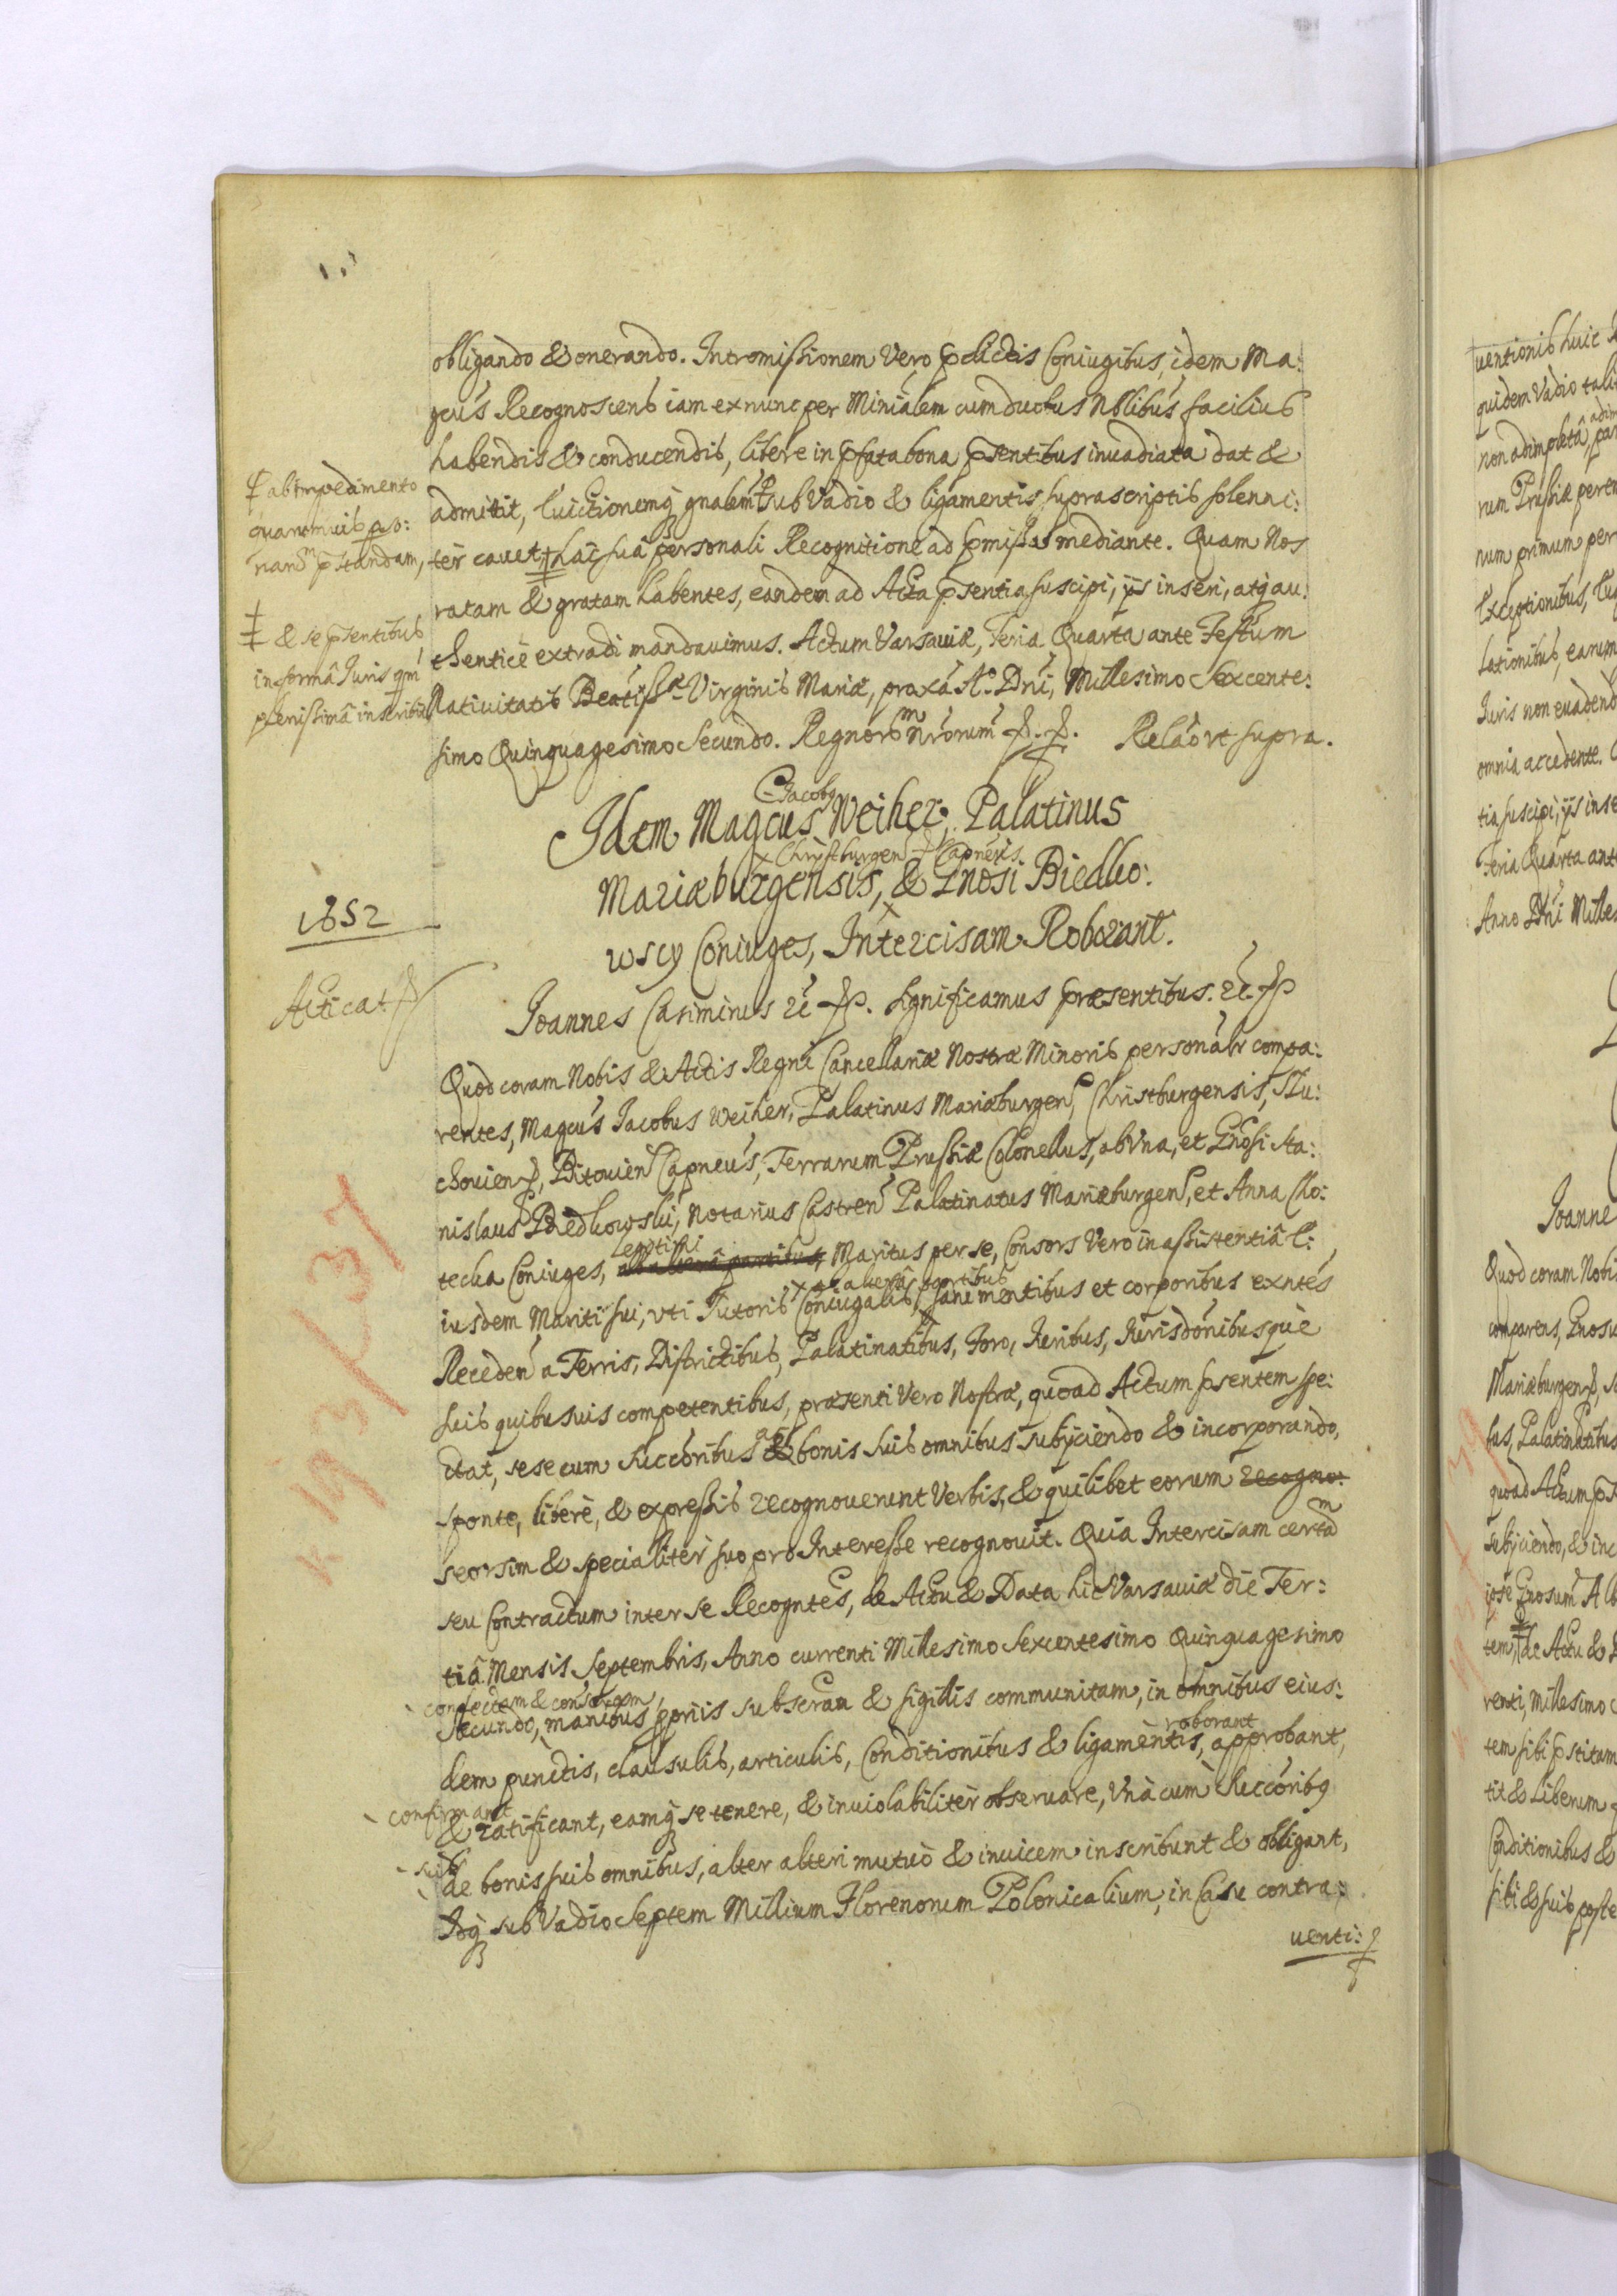 obligando & onerando. Intromissionem vero pdictis Coniugibus, idem Ma:
gcus Recognoscens iam ex nunc per Minialem cum duobus Nblibus facilius
habendis & conducendis, libere in pfata bona psentibus invadiata dat &
admittit, Euictionemq gnalem sub Vadio & ligamentis suprascriptis solenni:
ter cauet hac sua personali Recognitione ad pmissa mediante. Quam Nos
ratam & gratam habentes, eandem ad Acta psentia suscipi, ijs inseri, atq au:
thentice extradi mandauimus. Actum Varsauiæ, Feria Quarta ante Festum
Natiuitatis Beatissæ Virginis Mariæ, proxa Ao Dni, Millesimo Sexcente:
simo Quinquagesimo Secundo. Regnorm nrorum Relao vt supra.
ab impedimento
quorumuis
pstandam,
& se psentibus
in forma Iuris qm
plenissima inscribit
Jacobq
Idem Magcus Weiher, Palatinus
Christburgen Capneus
Mariæburgensis, & Gnosi Biedko:
wscy Coniuges, Intercisam Roborant.
1652
Acticat
Joannes Casimirus significamus præsentibus.
Quod coram Nobis & Actis Regni Cancellariæ Nostræ Minoris personalr compa:
rentes, Magcus Jacobus Weiher, Palatinus Mariæburgen, Christburgensis, Slu:
chouien, Bitouien Capneus, Terrarum Prussiæ Colonellus, ab vna, et Gnosi Sta:
nislaus Biedkowski, Notarius Castren Palatinatus Mariæburgen, et Anna Cho:
tecka Coniuges, ab altera partibus, Maritus per se, Consors vero in assistentia E:
Legitimi
iusdem Mariti sui, vti Tutoris Coniugalis, sani mentibus et corporibus exntes
x ab altera partibus
Receden a Terris, Districtibus, Palatinatibus, Foro, Iuribus, Iurisdonibusque
suis quibusuis competentibus, præsenti vero Nostræ, quoad Actum psentem spe:
ctat, sese cum Succoribus ac bonis suis omnibus subijciendo & incorporando,
sponte, libere, & expressis recognouerunt Verbis, & quilibet eorum recogno:
seorsim & specialiter suo pro Interesse recognouit. Quia Intercisam certam
seu Contractum inter se Recogntes, de Actu & Data hic Varsauiæ die Ter:
tia Mensis Septembris, Anno currenti Millesimo Sexcentesimo Quinquagesimo
confectam & conscriptam,
Secundo, manibus pprijs subscram & sigillis communitam, in omnibus eius:
dem punctis, clausulis, articulis, Conditionibus & ligamentis, approbant,
roborant
confirmant
& ratificant, eamq se tenere, & inuiolabiliter obseruare, vna cum Succoribq
suis
de bonis suis omnibus, alter alteri mutuo & inuicem inscribunt & obligant,
Idq sub Vadio Septem Millium Florenorum Polonicalium, in Casu contra:
uenti:
uentionis huic
quidem Vadio tali
non adimpleta
rum Prussiæ
num primum per
Exceptionibus,
lationibus, earum
Iuris non euadend
omnia accedente.
tia suscipi, ijs inse
Feria Quarta ante
Anno Dni Milles
Joanne
Quod coram Nobi
comparens, Gnosu
Mariæburgen,
bus, Palatinatibus
quoad Actum ps
subijciendo, & inc
Gnosum Al
tem, de Actu &
renti, Millesimo
tem sibi pstitam
tit & Liberum
Conditionibus &
sibi & suis poste